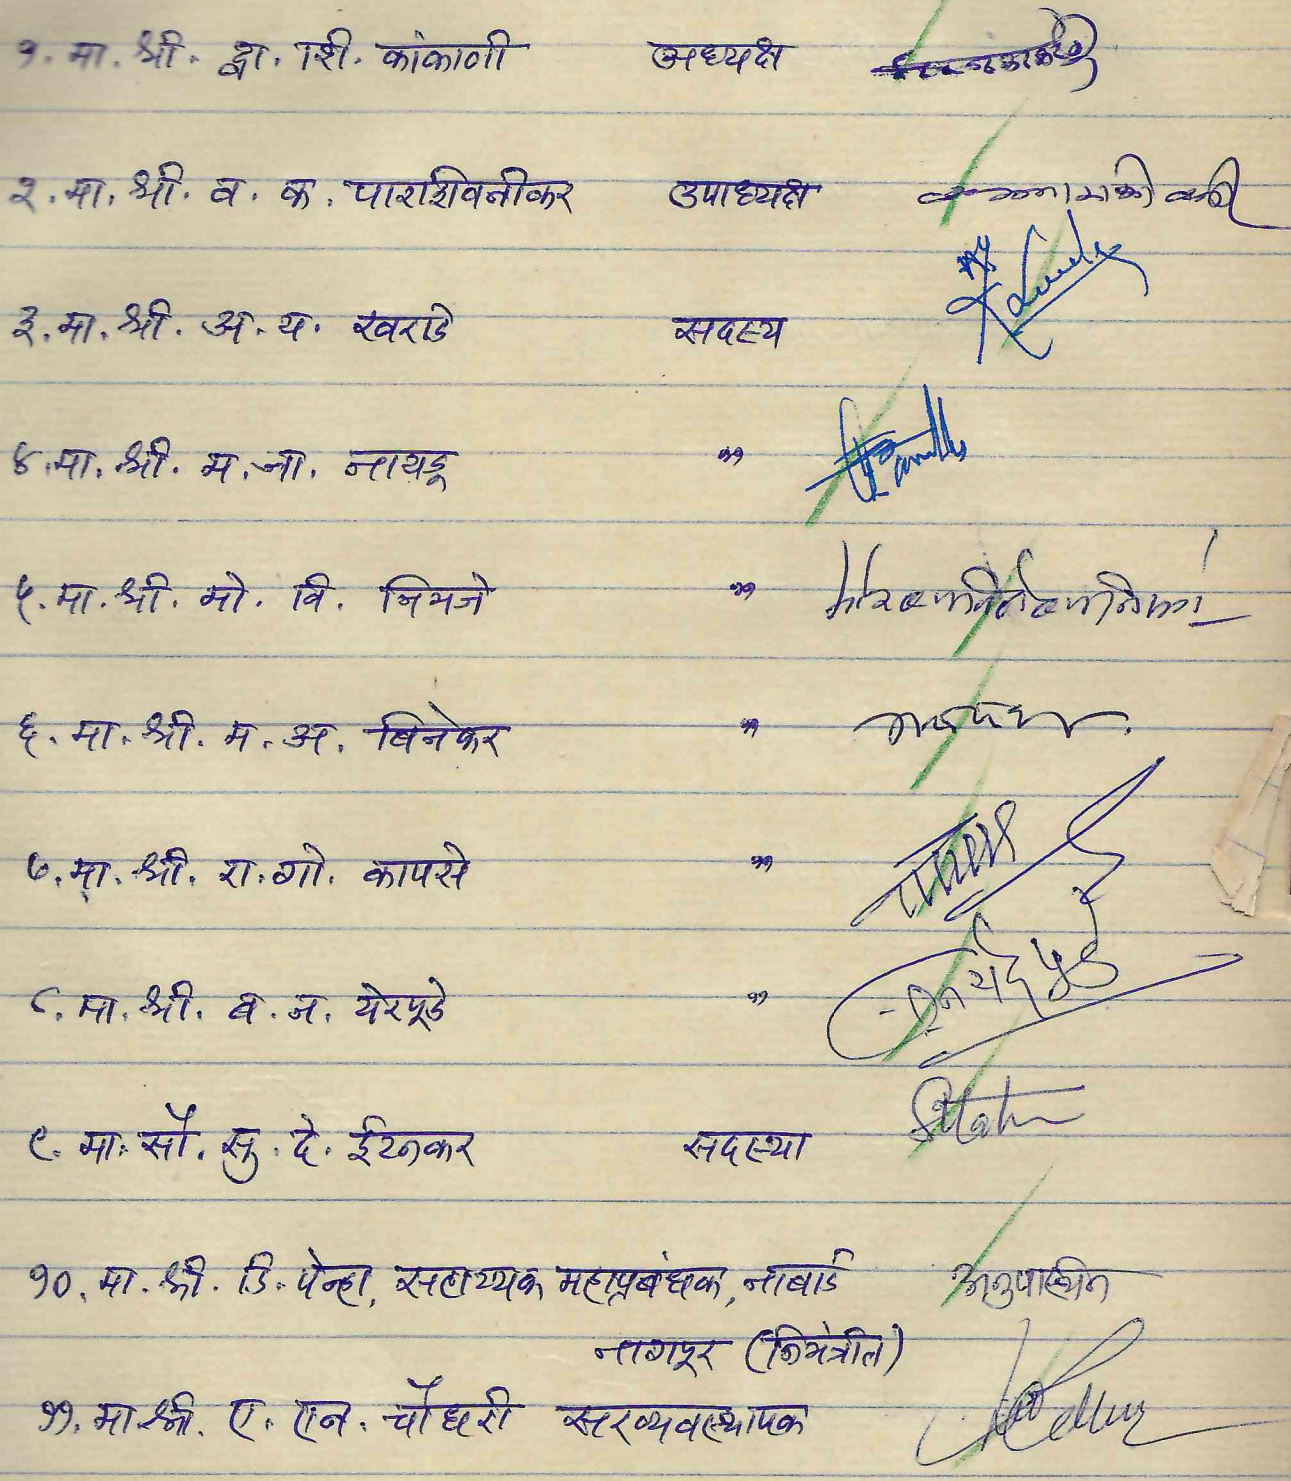 १. मा. श्री. द्वा. शि. कांकाणी अध्यक्ष
२. मा. श्री. व. क. पाराशिवनीकर उपाध्यक्ष
३. मा. श्री. अ. य. खराडे सदस्य
४. मा. श्री. म. ना. नायडू "
५. मा. श्री. मो. वि. निमजे "
६. मा. श्री. म. अ. बिनेकर "
७. मा. श्री. रा. गो. कापसे "
८. मा. श्री. ब. न. येरपूडे "
९. मा. सौ. सु. दे. ईटनकर सदस्या
१०. मा. श्री. डि. पेन्हा, सहाय्यक महाप्रबंधक, नाबार्ड अनुपास्थित
नागपूर (निमंत्रीत)
११. मा. श्री. ए. एन. चौधरी सरव्यवस्थापक